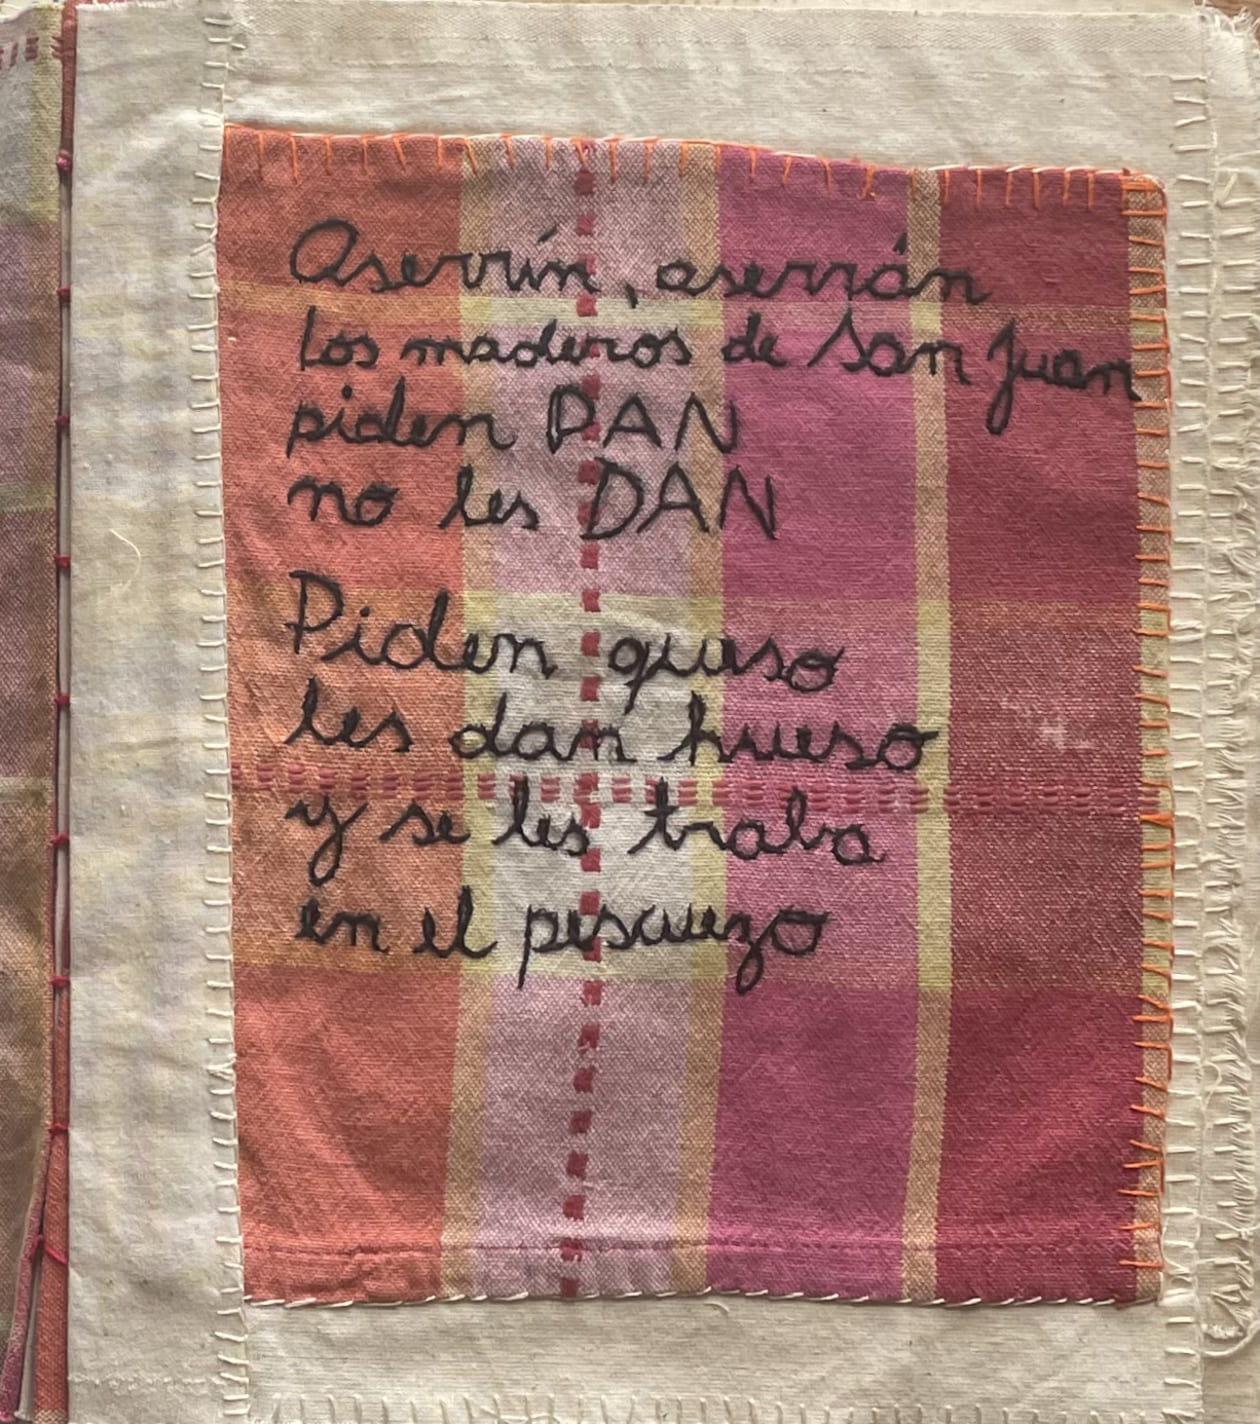 Aserrín, aserrán
los maderos de San Juan
piden PAN
no les DAN
Piden queso
les dan hueso
y se les traba
en el pescuezo